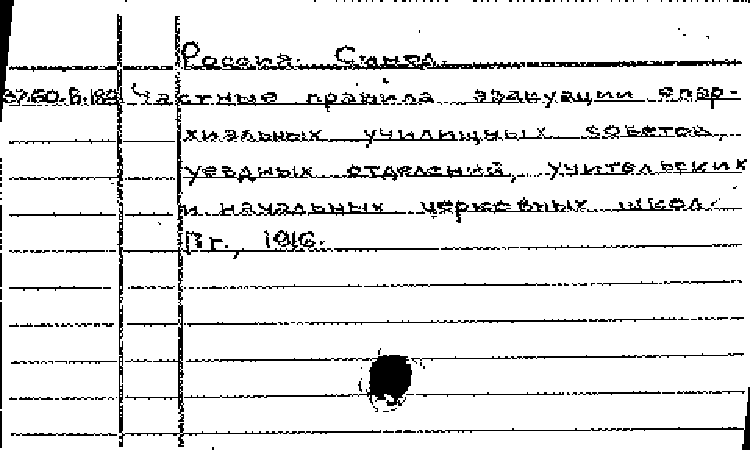 Россия. Синод.
Частные правила эвакуации епар-
хиальных училищных советов,
уездных отделений, учительских
и начальных церковных школ.
Пг., 1916.